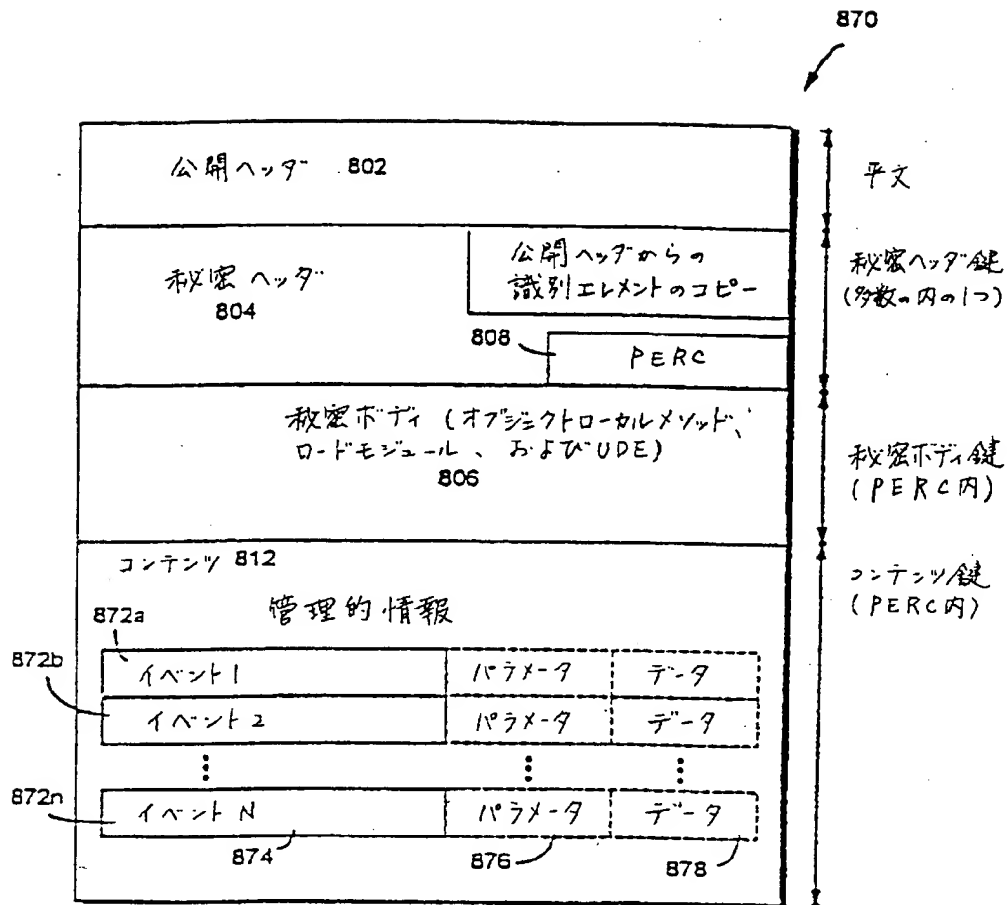 870
公開ヘッダ 802
平文
秘密ヘッダ
804
公開ヘッダからの
識別エレメントのコピー
808
PERC
秘密ヘッダ鍵
(多数の内の1つ)
秘密ボディ (オブジェクトローカルメソッド、
ロードモジュール、およびUDE)
806
秘密ボディ鍵
(PERC内)
コンテンツ 812
管理的情報
コンテンツ鍵
(PERC内)
872a
イベント1 パラメータ データ
872b
イベント2 パラメータ データ
872n
イベントN パラメータ データ
874 876 878